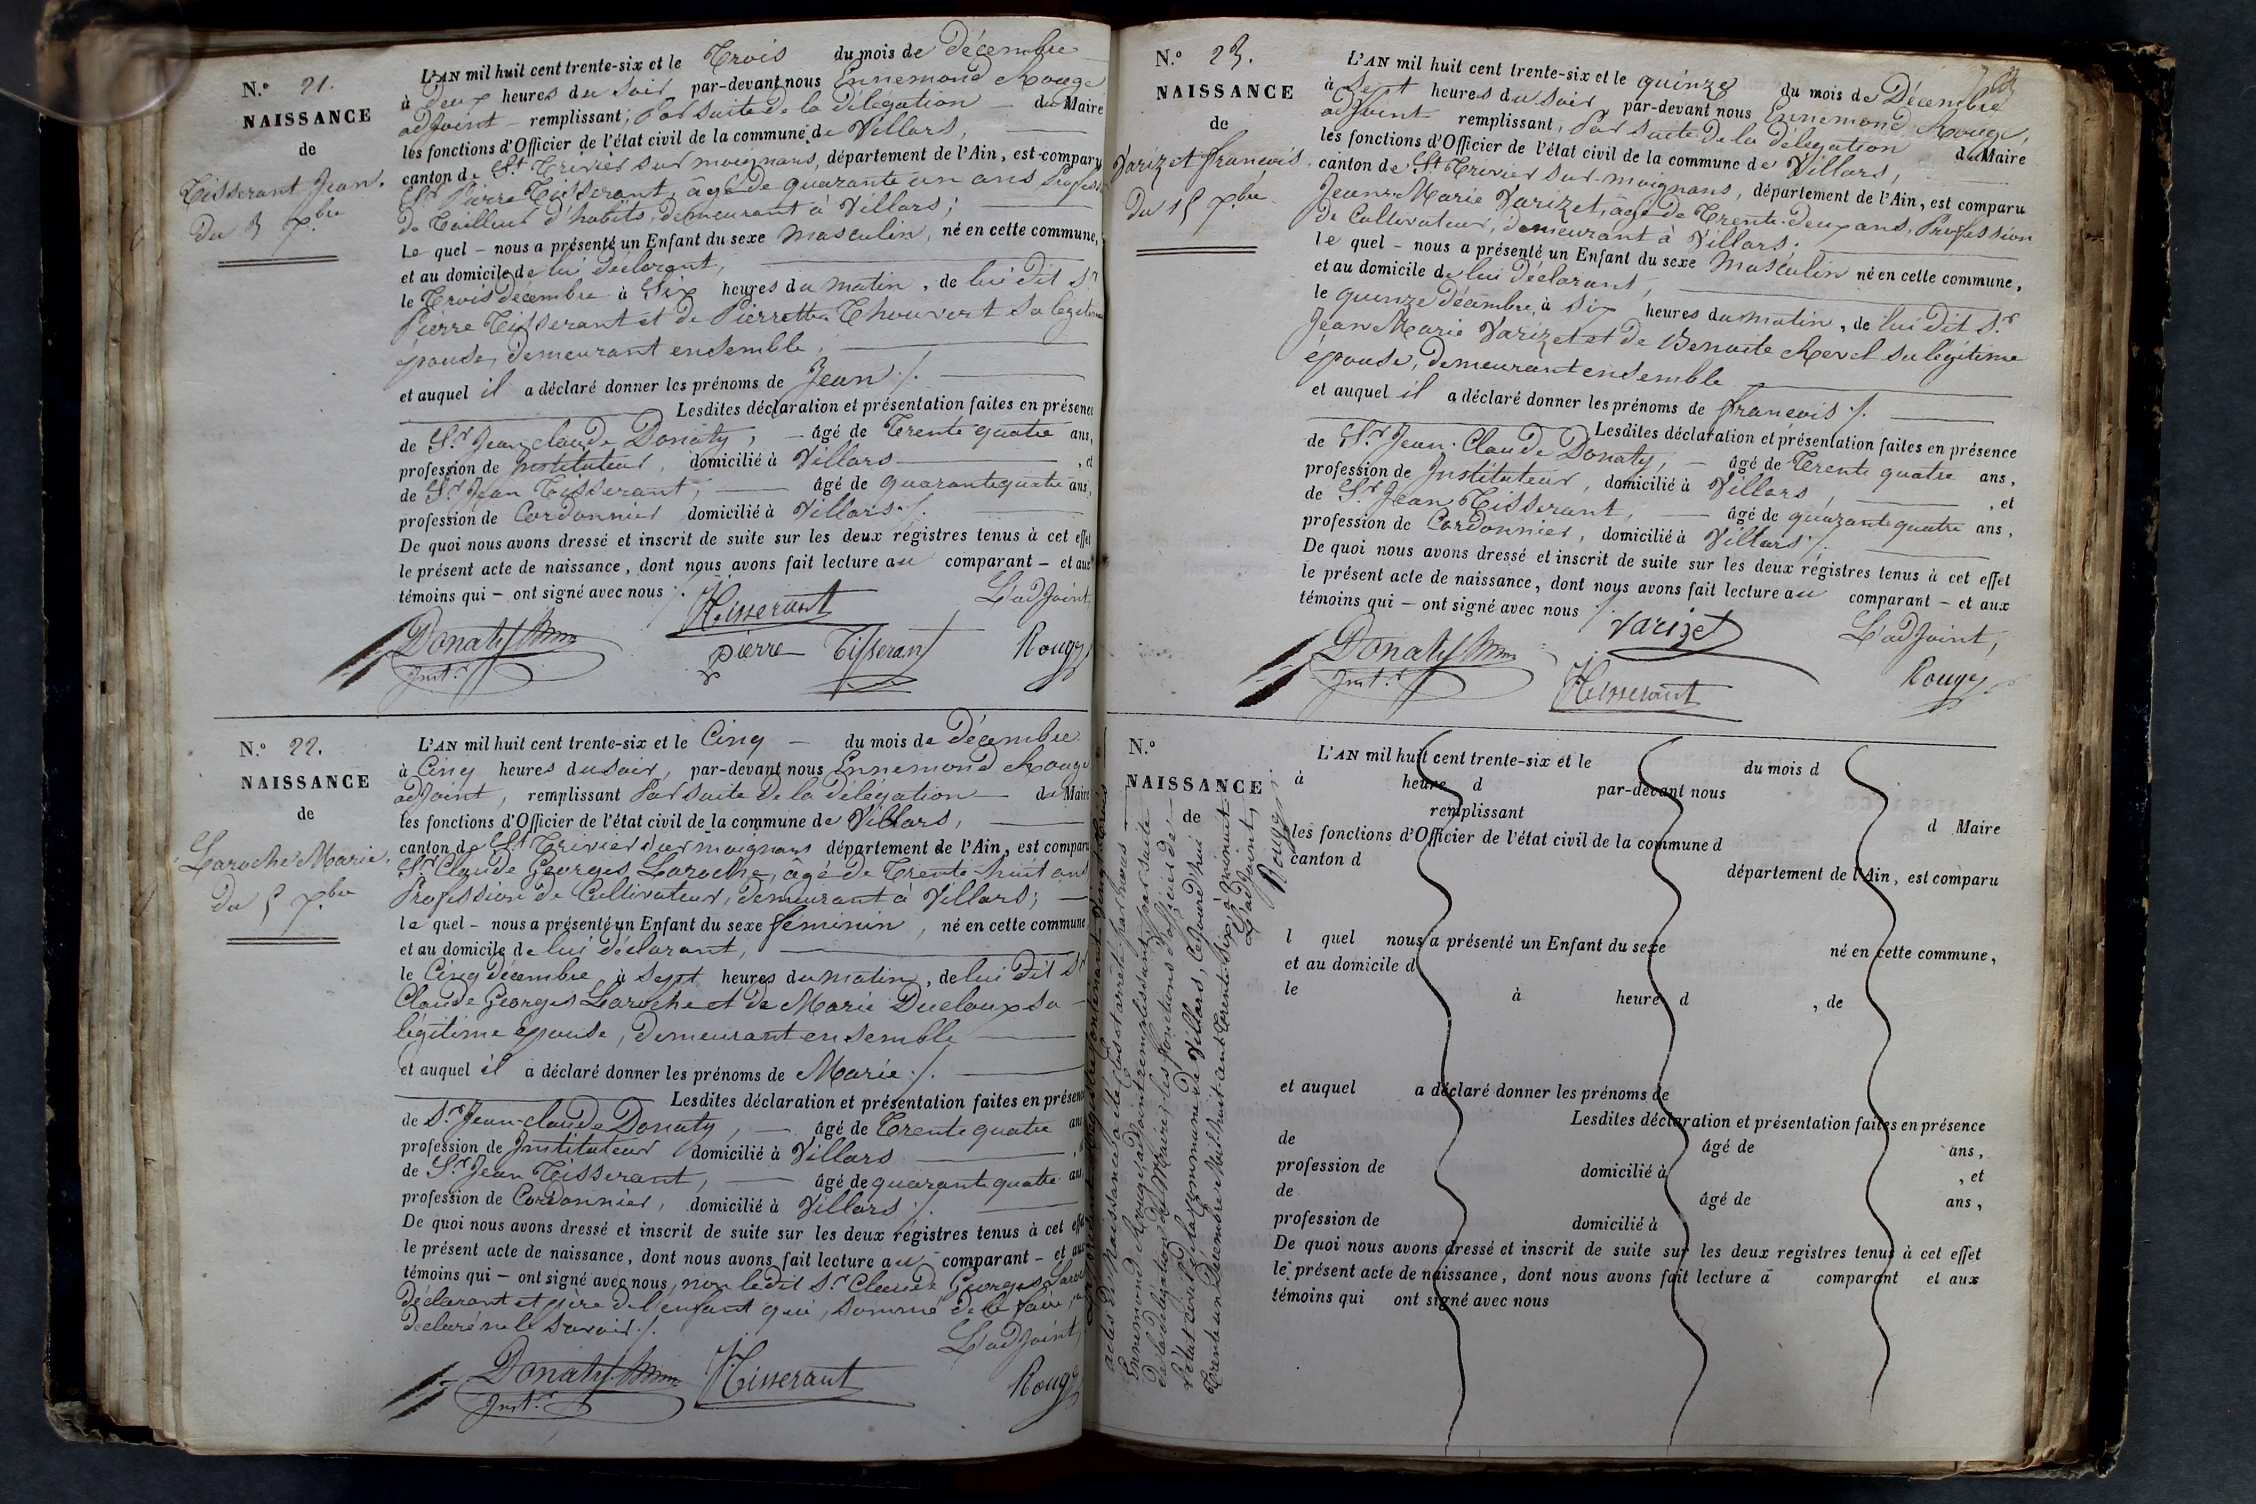 N.o 21.
NAISSANCE
de
Tisserant Jean.
du 3 Xbre
L'AN mil huit cent trente-six et le Trois du mois de Décembre
à deux heures du soir par-devant nous Ennemond Rouge
adjoint remplissant, Par suite de la délégation du Maire
les fonctions d'Officier de l'état civil de la commune de Villars,
canton de St Trivier sur moignans, département de l'Ain, est comparu
Sr Pierre Tisserant, âgé de quarante un ans Profession
de Tailleur d'habits, demeurant à Villars;
Le quel – nous a présenté un Enfant du sexe Masculin, né en cette commune,
et au domicile de lui déclarant,
le Trois décembre à Six heures du matin, de lui dit Sr
Pierre Tisserant et de Pierrette Thouvert sa légitime
épouse, demeurant ensemble,
et auquel il a déclaré donner les prénoms de Jean ./.
Lesdites déclaration et présentation faites en présence
de Sr Jean claude Donaty, – âgé de Trente quatre ans,
profession de Instituteur, domicilié à Villars , et
de Sr Jean Tisserant, âgé de quarante quatre ans,
profession de Cordonnier domicilié à Villars ./.
De quoi nous avons dressé et inscrit de suite sur les deux régistres tenus à cet effet
le présent acte de naissance, dont nous avons fait lecture au comparant – et aux
témoins qui – ont signé avec nous ./.
L'adjoint,
Tisserant
Donaty
Instr
pierre Tisseran
Rouge
N.o 22.
NAISSANCE
de
Laroche Marie.
du 5 Xbre
L'AN mil huit cent trente-six et le Cinq – du mois de Décembre
à Cinq heures du soir, par-devant nous Ennemond Rouge
adjoint, remplissant Par suite de la délégation du Maire
les fonctions d'Officier de l'état civil de la commune de Villars,
canton de St Trivier sur moignans département de l'Ain, est comparu
Sr Claude Georges Laroche, âgé de Trente-huit ans
Profession de Cultivateur, demeurant à Villars;
le quel – nous a présenté un Enfant du sexe féminin, né en cette commune
et au domicile de lui déclarant,
le Cinq décembre, à sept heures du matin, de lui dit Sr
Claude Georges Laroche et de Marie Ducloux sa
légitime épouse, demeurant ensemble
et auquel il a déclaré donner les prénoms de Marie ./.
Lesdites déclaration et présentation faites en présence
de Sr Jean-claude Donaty, – âgé de Trente quatre ans
profession de Instituteur domicilié à Villars
de Sr Jean Tisserant, âgé de quarante quatre ans
profession de Cordonnier, domicilié à Villars ./.
De quoi nous avons dressé et inscrit de suite sur les deux régistres tenus à cet effet
le présent acte de naissance, dont nous avons fait lecture au comparant – et aux
témoins qui – ont signé avec nous, non ledit Sr Claude Georges Laroche
déclarant et père de l'enfant qui, sommé de le faire, a
déclaré ne le savoir ./.
L'adjoint,
Donaty
Instr
Tisserant
Rouge
N.o 23.
NAISSANCE
de
Varizet francois.
du 15 Xbre
L'AN mil huit cent trente-six et le quinze du mois de Décembre
à Sept heures du soir par-devant nous Ennemond Rouge,
adjoint remplissant, Par suite de la délégation du Maire
les fonctions d'Officier de l'état civil de la commune de Villars,
canton de St Trivier sur-moignans, département de l'Ain, est comparu
Jean-Marie Varizet, âgé de Trente-deux ans, Profession
de Cultivateur, demeurant à Villars;
le quel – nous a présenté un Enfant du sexe Masculin né en cette commune,
et au domicile de lui déclarant,
le quinze décembre, à six heures du matin, de lui dit Sr
Jean Marie Varizet et de Benoite Revel sa légitime
épouse, demeurant ensemble
et auquel il a déclaré donner les prénoms de francois ./.
Lesdites déclaration et présentation faites en présence
de Sr Jean-Claude Donaty, – âgé de Trente quatre ans,
profession de Instituteur, domicilié à Villars , et
de Sr Jean Tisserant, âgé de quarante quatre ans,
profession de Cordonnier, domicilié à Villars ./.
De quoi nous avons dressé et inscrit de suite sur les deux régistres tenus à cet effet
le présent acte de naissance, dont nous avons fait lecture au comparant – et aux
témoins qui – ont signé avec nous ./.
Varizet
L'adjoint,
Donaty
Instr
Tisserant
Rouge
N.o
NAISSANCE
de
L'AN mil huit cent trente-six et le du mois d
à heure d par-devant nous
remplissant d Maire
les fonctions d'Officier de l'état civil de la commune d
canton d département de l'Ain, est comparu
l quel nous a présenté un Enfant du sexe né en cette commune,
et au domicile d
le à heure d , de
et auquel a déclaré donner les prénoms de
Lesdites déclaration et présentation faites en présence
de âgé de ans,
profession de domicilié à , et
de âgé de ans,
profession de domicilié à
De quoi nous avons dressé et inscrit de suite sur les deux registres tenus à cet effet
le présent acte de naissance, dont nous avons fait lecture à comparant et aux
témoins qui ont signé avec nous
actes de Naissance a été Clos et arrêté par nous
Ennemond Rouge, adjoint remplissant, par suite
de la délégation du Maire, les fonctions d'officier de
l'état civil de la commune de Villars, Cejourd'hui
Trente un Décembre Mil huit cent trente-Six, à minuit.
L'adjoint,
Rouge